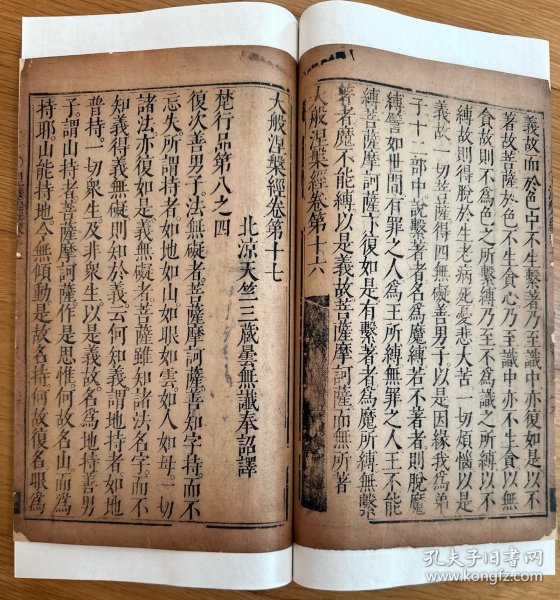 義故而於色中不生繫著乃至識中亦不生著以是
著故菩薩於色不生貪心乃至識中亦不生貪以無
貪故則不爲色之所繫縛乃至不爲識之所縛以不
縛故則得脫於生老病死憂悲大苦一切煩惱以是
義故一切菩薩得四無礙善男子以是因緣我爲弟
子十二部中說繫著者名爲魔縛若不著者則脫魔
縛譬如世間有罪之人爲王所縛無罪之人王不能
縛菩薩摩訶薩亦復如是有繫著者爲魔所縛無繫
著者魔不能縛以是義故菩薩摩訶薩而無所著
大般涅槃經卷第十六
大般涅槃經卷第十七
北涼天竺三藏曇無讖奉詔譯
梵行品第八之四
復次善男子法無礙者菩薩摩訶薩善知字持而不
忘失所謂持者如地如山如眼如雲如人如母一切
諸法亦復如是義無礙者菩薩雖知諸法名字而不
知義得義無礙則知於義云何知義謂地持者如地
普持一切衆生及非衆生以是義故名爲地持善男
子謂山持者菩薩摩訶薩作是思惟何故名山而爲
持耶山能持地令無傾動是故名持何故復名眼爲
孔夫子旧书网
www.kongfz.com